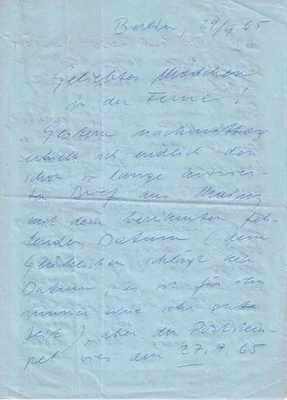 Berlin, 29/9 65
Geliebtes Mädchen
in der Ferne!
Gestern nachmittag
erhielt ich endlich den
schon so lange erwarte-
ten Brief aus Mainz
mit dem berühmten feh-
lenden Datum (dem
Glücklichen schlägt kein
Datum, es ist für ihn
immer eine sehr gute
Zeit), aber der Poststem-
pel war der 27.9.65